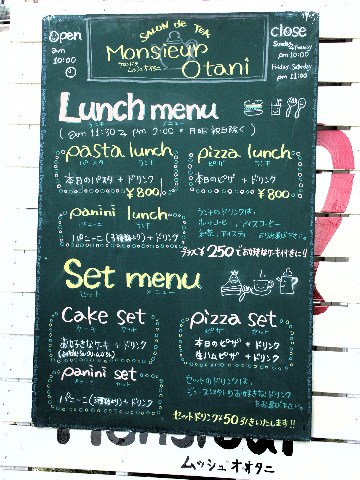 Open
am
10:00
SALON de THE
Monsieur
Otani
サロンドテ
ムッシュオオタニ
close
Sunday~Thursday
pm 10:00
Friday Saturday
pm 11:00
Lunch menu
ランチ メニュー
(am 11:30 ~ pm 2:00 * 日曜 祝日除く)
pasta lunch
パスタ ランチ
本日のパスタ + ドリンク
¥800
pizza lunch
ピザ ランチ
本日のピザ + ドリンク
¥800
panini lunch
パニーニ ランチ
パニーニ(3種類より) + ドリンク
ランチのドリンクは、
ホットコーヒー、アイスコーヒー
紅茶、アイスティ よりお選び下さい。
プラス¥250でお好きなケーキ付きに!!
Set menu
セット メニュー
cake set
ケーキ セット
お好きなケーキ + ドリンク
pizza set
ピザ セット
本日のピザ + ドリンク
生ハムピザ + ドリンク
panini set
パニーニ セット
パニーニ(3種類より) + ドリンク
セットのドリンクは、
メニューよりお好きなドリンク
をお選び下さい。
セットドリンク¥50引きいたします!!
Monsieur
ムッシュオオタニ